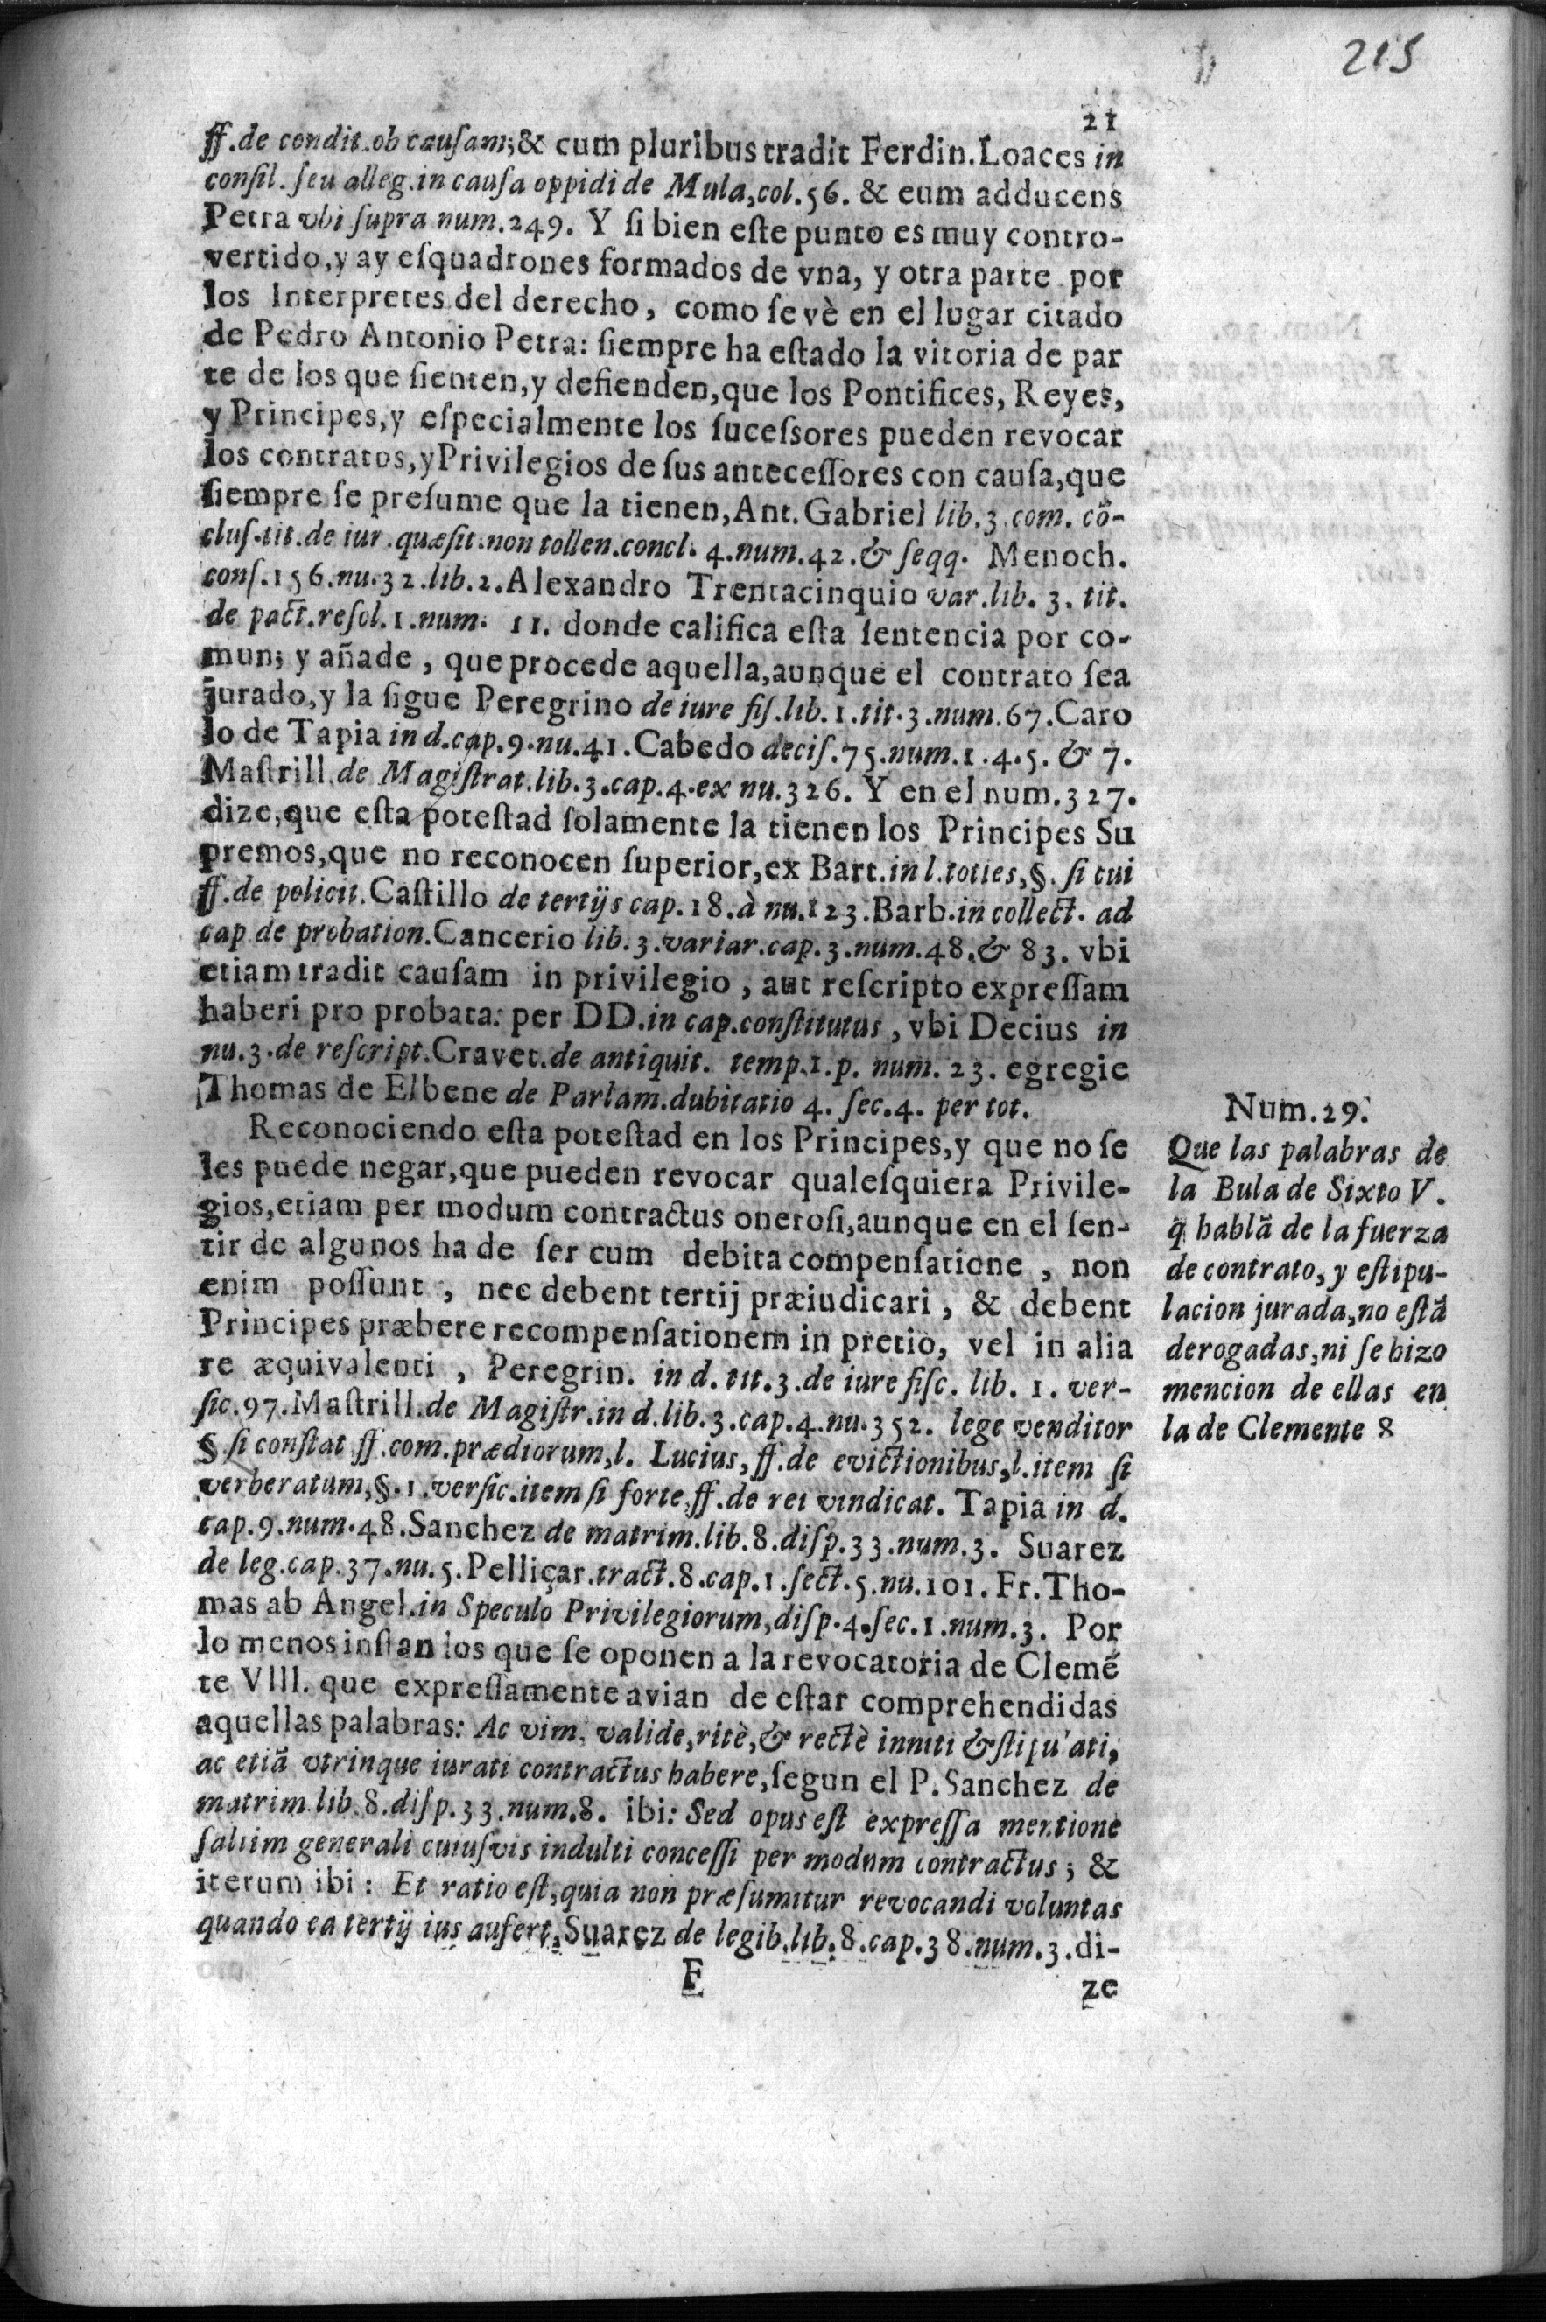 215
21
ff.de condit.ob cauſam;& cum pluribus tradit Ferdin.Loaces in
conſil. ſeu alleg.in cauſa oppidi de Mula,col.56. & eum adducens
Petra vbi ſupra num.249. Y ſi bien eſte punto es muy contro-
vertido,y ay eſquadrones formados de vna, y otra parte por
los Interpretes del derecho, como ſe vè en el lugar citado
de Pedro Antonio Petra: ſiempre ha eſtado la vitoria de par
te de los que ſienten,y defienden,que los Pontifices, Reyes,
y Principes,y eſpecialmente los ſuceſsores pueden revocar
los contratos,y Privilegios de ſus anteceſſores con cauſa,que
ſiempre ſe preſume que la tienen,Ant.Gabriel lib.3.com. cõ-
cluſ.tit.de iur.quæſit.non tollen.concl. 4.num.42.& ſeqq. Menoch.
conſ.156.nu.32.lib.2.Alexandro Trentacinquio var.lib. 3. tit.
de pact.reſol.1.num. 11. donde califica eſta ſentencia por co-
mun; y añade, que procede aquella,aunque el contrato ſea
jurado,y la ſigue Peregrino de iure fiſ.lib.1.tit.3.num.67.Caro
lo de Tapia in d.cap.9.nu.41.Cabedo deciſ.75.num.1.4.5. & 7.
Maſtrill.de Magiſtrat.lib.3.cap.4.ex nu.326. Y en el num.327.
dize,que eſta poteſtad ſolamente la tienen los Principes Su
premos,que no reconocen ſuperior,ex Bart.in l.toties,§. ſi cui
ff.de policit.Caſtillo de tertijs cap.18.à nu.123.Barb.in collect. ad
cap de probation.Cancerio lib.3.variar.cap.3.num.48.& 83. vbi
etiam tradit cauſam in privilegio, aut reſcripto expreſſam
haberi pro probata: per DD.in cap.conſtitutus, vbi Decius in
nu.3.de reſcript.Cravet.de antiquit. temp.1.p. num. 23. egregie
Thomas de Elbene de Parlam.dubitatio 4. ſec.4. per tot.
Reconociendo eſta poteſtad en los Principes,y que no ſe
les puede negar,que pueden revocar qualeſquiera Privile-
gios,etiam per modum contractus oneroſi,aunque en el ſen-
tir de algunos ha de ſer cum debita compenſatione, non
enim poſſunt, nec debent tertij præiudicari, & debent
Principes præbere recompenſationem in pretio, vel in alia
re æquivalenti, Peregrin. in d. tit.3.de iure fiſc. lib. 1. ver-
ſic.97.Maſtrill.de Magiſtr.in d.lib.3.cap.4.nu.352. lege venditor
§ ſi conſtat ff.com.prædiorum,l. Lucius, ff.de evictionibus,l.item ſi
verberatum,§.1.verſic.item ſi forte,ff.de rei vindicat. Tapia in d.
cap.9.num.48.Sanchez de matrim.lib.8.diſp.33.num.3. Suarez
de leg.cap.37.nu.5.Pelliçar.tract.8.cap.1.ſect.5.nu.101.Fr.Tho-
mas ab Angel.in Speculo Privilegiorum,diſp.4.ſec.1.num.3. Por
lo menos inſtan los que ſe oponen a la revocatoria de Clemẽ
te VIII. que expreſſamente avian de eſtar comprehendidas
aquellas palabras: Ac vim, valide,ritè,& rectè inniti & ſtipulati,
ac etiã vtrinque iurati contractus habere,ſegun el P.Sanchez de
matrim.lib.8.diſp.33.num.8. ibi: Sed opus eſt expreſſa mentione
ſaltim generali cuiuſvis indulti conceſſi per modum contractus; &
iterum ibi: Et ratio eſt,quia non præſumitur revocandi voluntas
quando ea tertij ius aufert,Suarez de legib.lib.8.cap.38.num.3.di-
F
ze
Num.29.
Que las palabras de
la Bula de Sixto V.
q̃ hablã de la fuerza
de contrato, y eſtipu-
lacion jurada,no eſtã
derogadas,ni ſe hizo
mencion de ellas en
la de Clemente 8